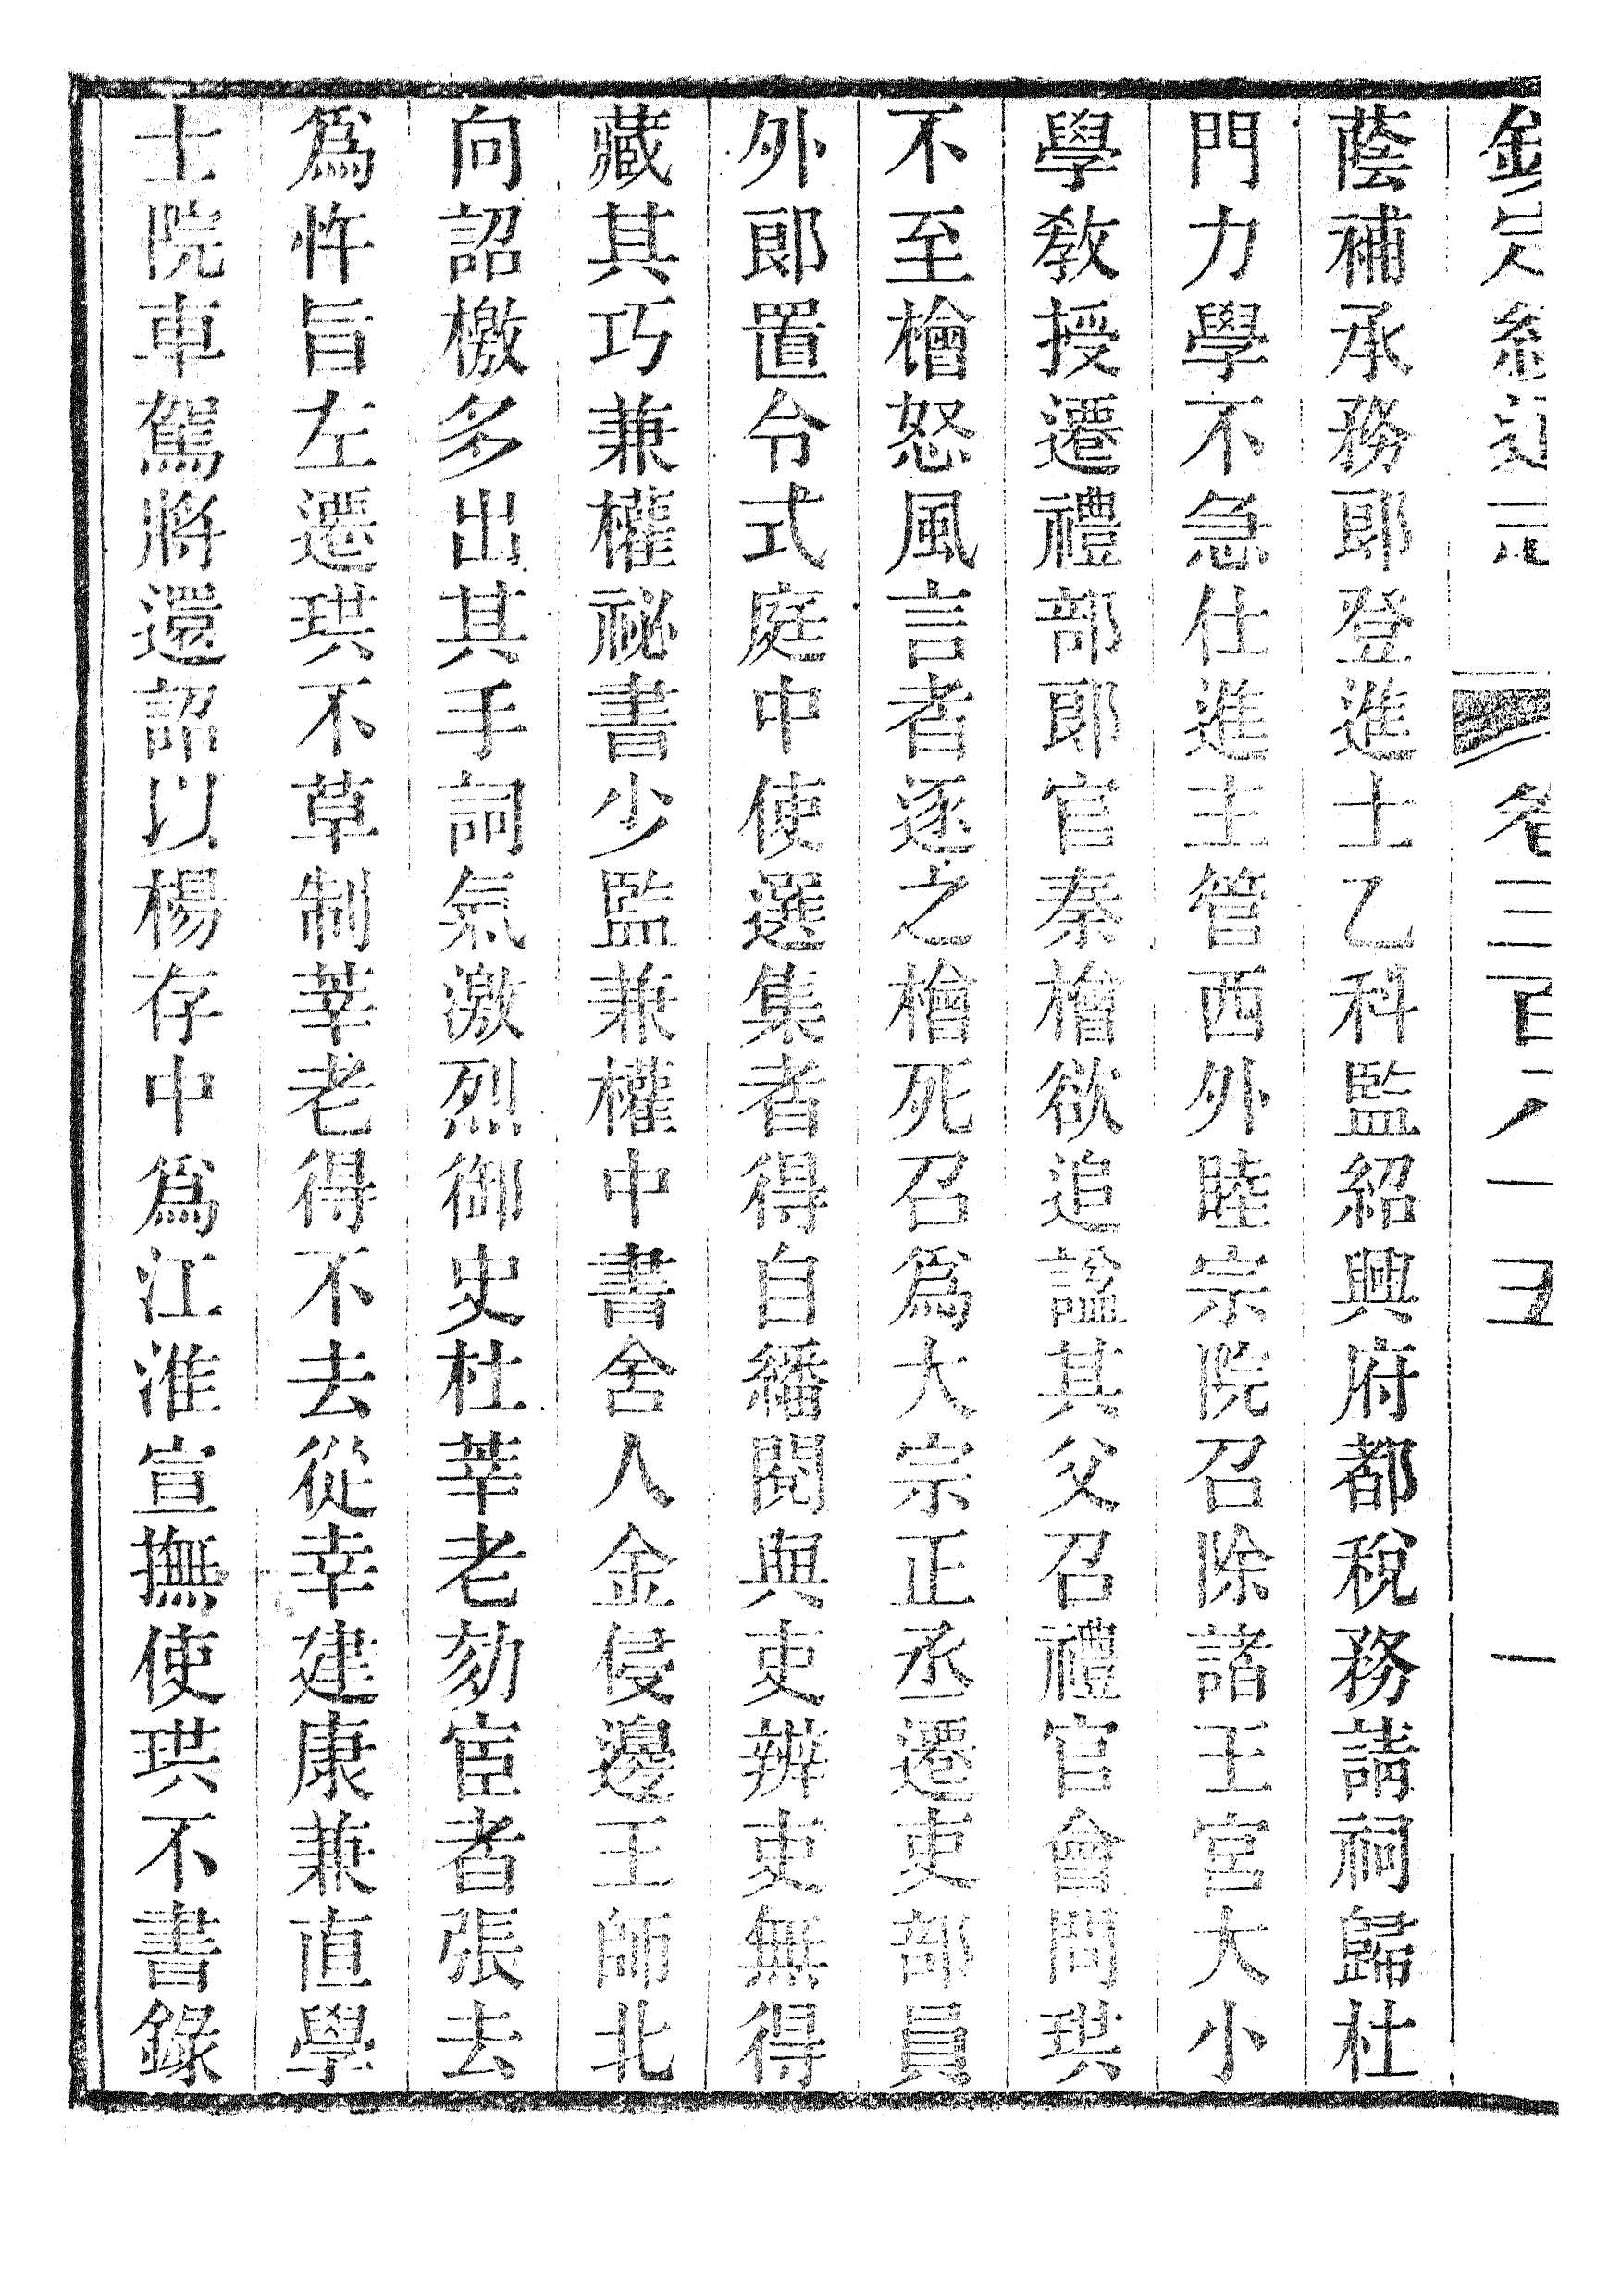 蔭補承務郞登進士乙科監紹興府都稅務請祠歸杜
門力學不急仕進主管西外睦宗院召除諸王宮大小
學敎授遷禮部郞官秦檜欲追諡其父召禮官會問珙
不至檜怒風言者逐之檜死召爲大宗正丞遷吏部員
外郞置令式庭中使選集者得自繙閱與吏辨吏無得
藏其巧兼權祕書少監兼權中書舍人金侵邊王師北
向詔檄多出其手詞氣激烈御史杜莘老劾宦者張去
爲忤旨左遷珙不草制莘老得不去從幸建康兼直學
士院車駕將還詔以楊存中爲江淮宣撫使珙不書錄